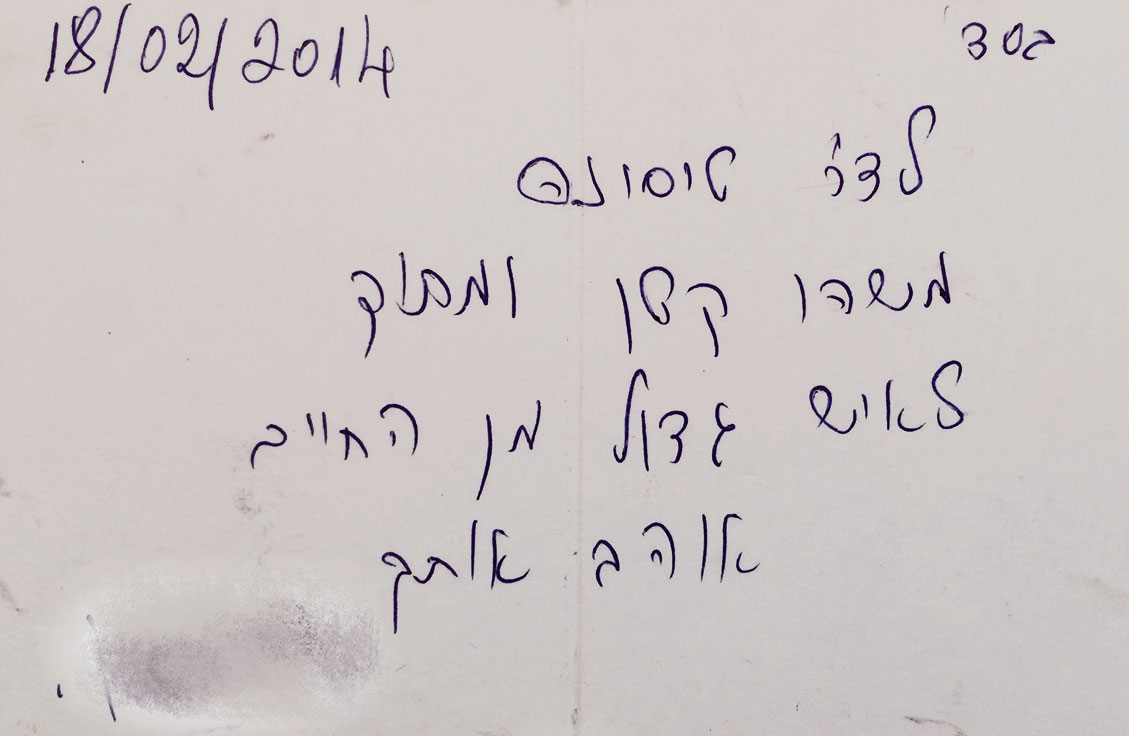 בסד 18/02/2014
לדר'
משהו קטן ומתוק
לאיש גדול מן החיים
אוהב אותך